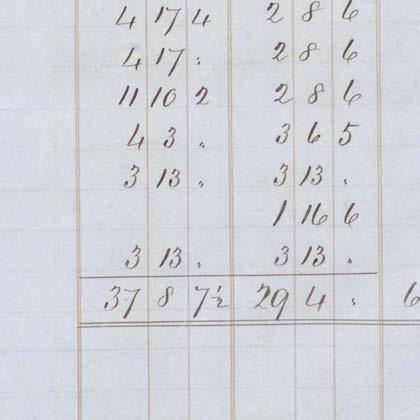 4 17 4 2 8 6
4 17 " 2 8 6
11 10 2 2 8 6
4 3 " 3 6 5
3 13 " 3 13 "
1 16 6
3 13 " 3 13 "
37 8 7½ 29 4 " 6